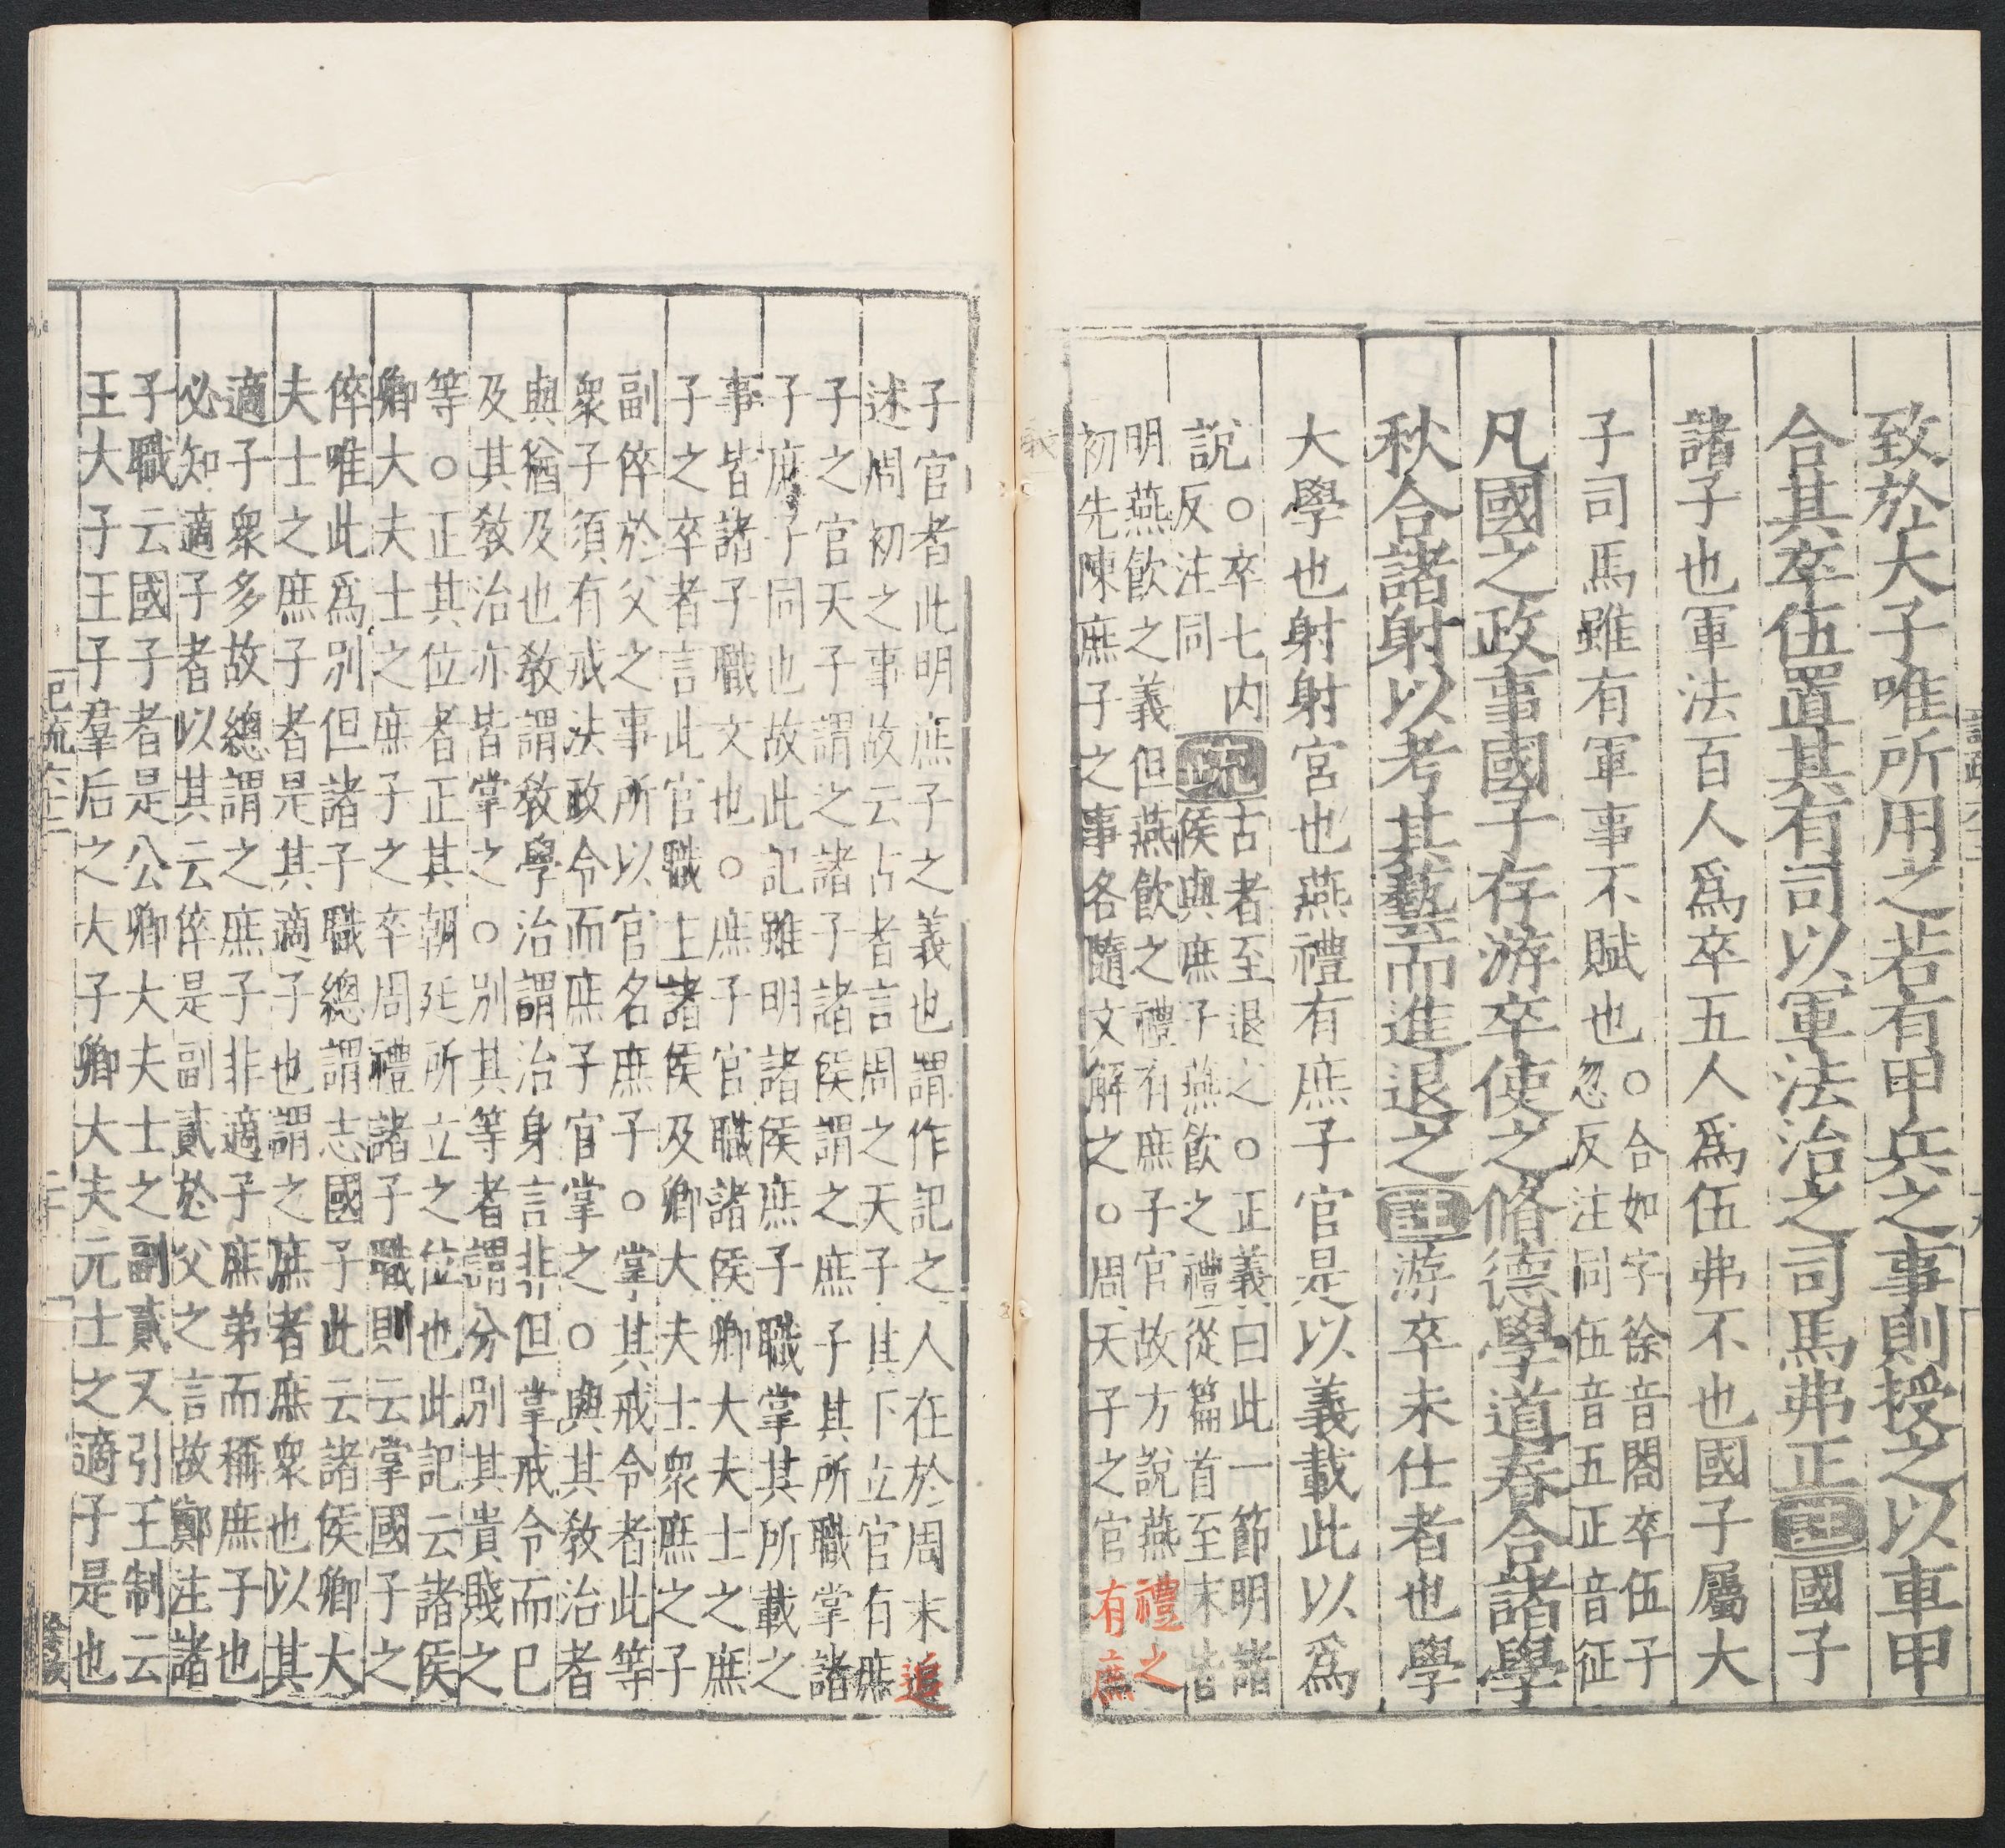 致於大子唯所用之若有甲兵之事則授之以車甲
合其卒伍置其有司以軍法治之司馬弗正註國子
諸子也軍法百人爲卒五人爲伍弗不也國子屬大
子司馬雖有軍事不賦也○合如字徐音閤卒伍子
忽反注同伍音五正音征
凡國之政事國子存游卒使之脩德學道春合諸學
秋合諸射以考其藝而進退之註游卒未仕者也學
大學也射射宮也燕禮有庶子官是以義載此以爲
說○卒七内
反注同
疏古者至退之○正義曰此一節明諸
侯與庶子燕飲之禮從篇首至末皆
明燕飲之義但燕飲之禮有庶子官故方說燕禮之
初先陳庶子之事各隨文解之○周天子之官有庶
子官者此明庶子之義也謂作記之人在於周末追
述周初之事故云古者言周之天子其下立官有庶
子之官天子謂之諸子諸侯謂之庶子其所職掌諸
子庶子同也故此記雖明諸侯庶子職掌其所載之
事皆諸子職文也○庶子官職諸侯卿大夫士之庶
子之卒者言此官職主諸侯及卿大夫士衆庶之子
副倅於父之事所以官名庶子○掌其戒令者此等
衆子須有戒法政令而庶子官掌之○與其教治者
與猶及也教謂教學治謂治身言非但掌戒令而已
及其教治亦皆掌之○別其等者謂分別其貴賤之
等○正其位者正其朝廷所立之位也此記云諸侯
卿大夫士之庶子之卒周禮諸子職則云掌國子之
倅唯此爲別但諸子職總謂志國子此云諸侯卿大
夫士之庶子者是其適子也謂之庶者庶衆也以其
適子衆多故總謂之庶子非適子庶弟而稱庶子也
必知適子者以其云倅是副貳於父之言故鄭注諸
子職云國子者是公卿大夫士之副貳又引王制云
王大子王子羣后之大子卿大夫元士之適子是也